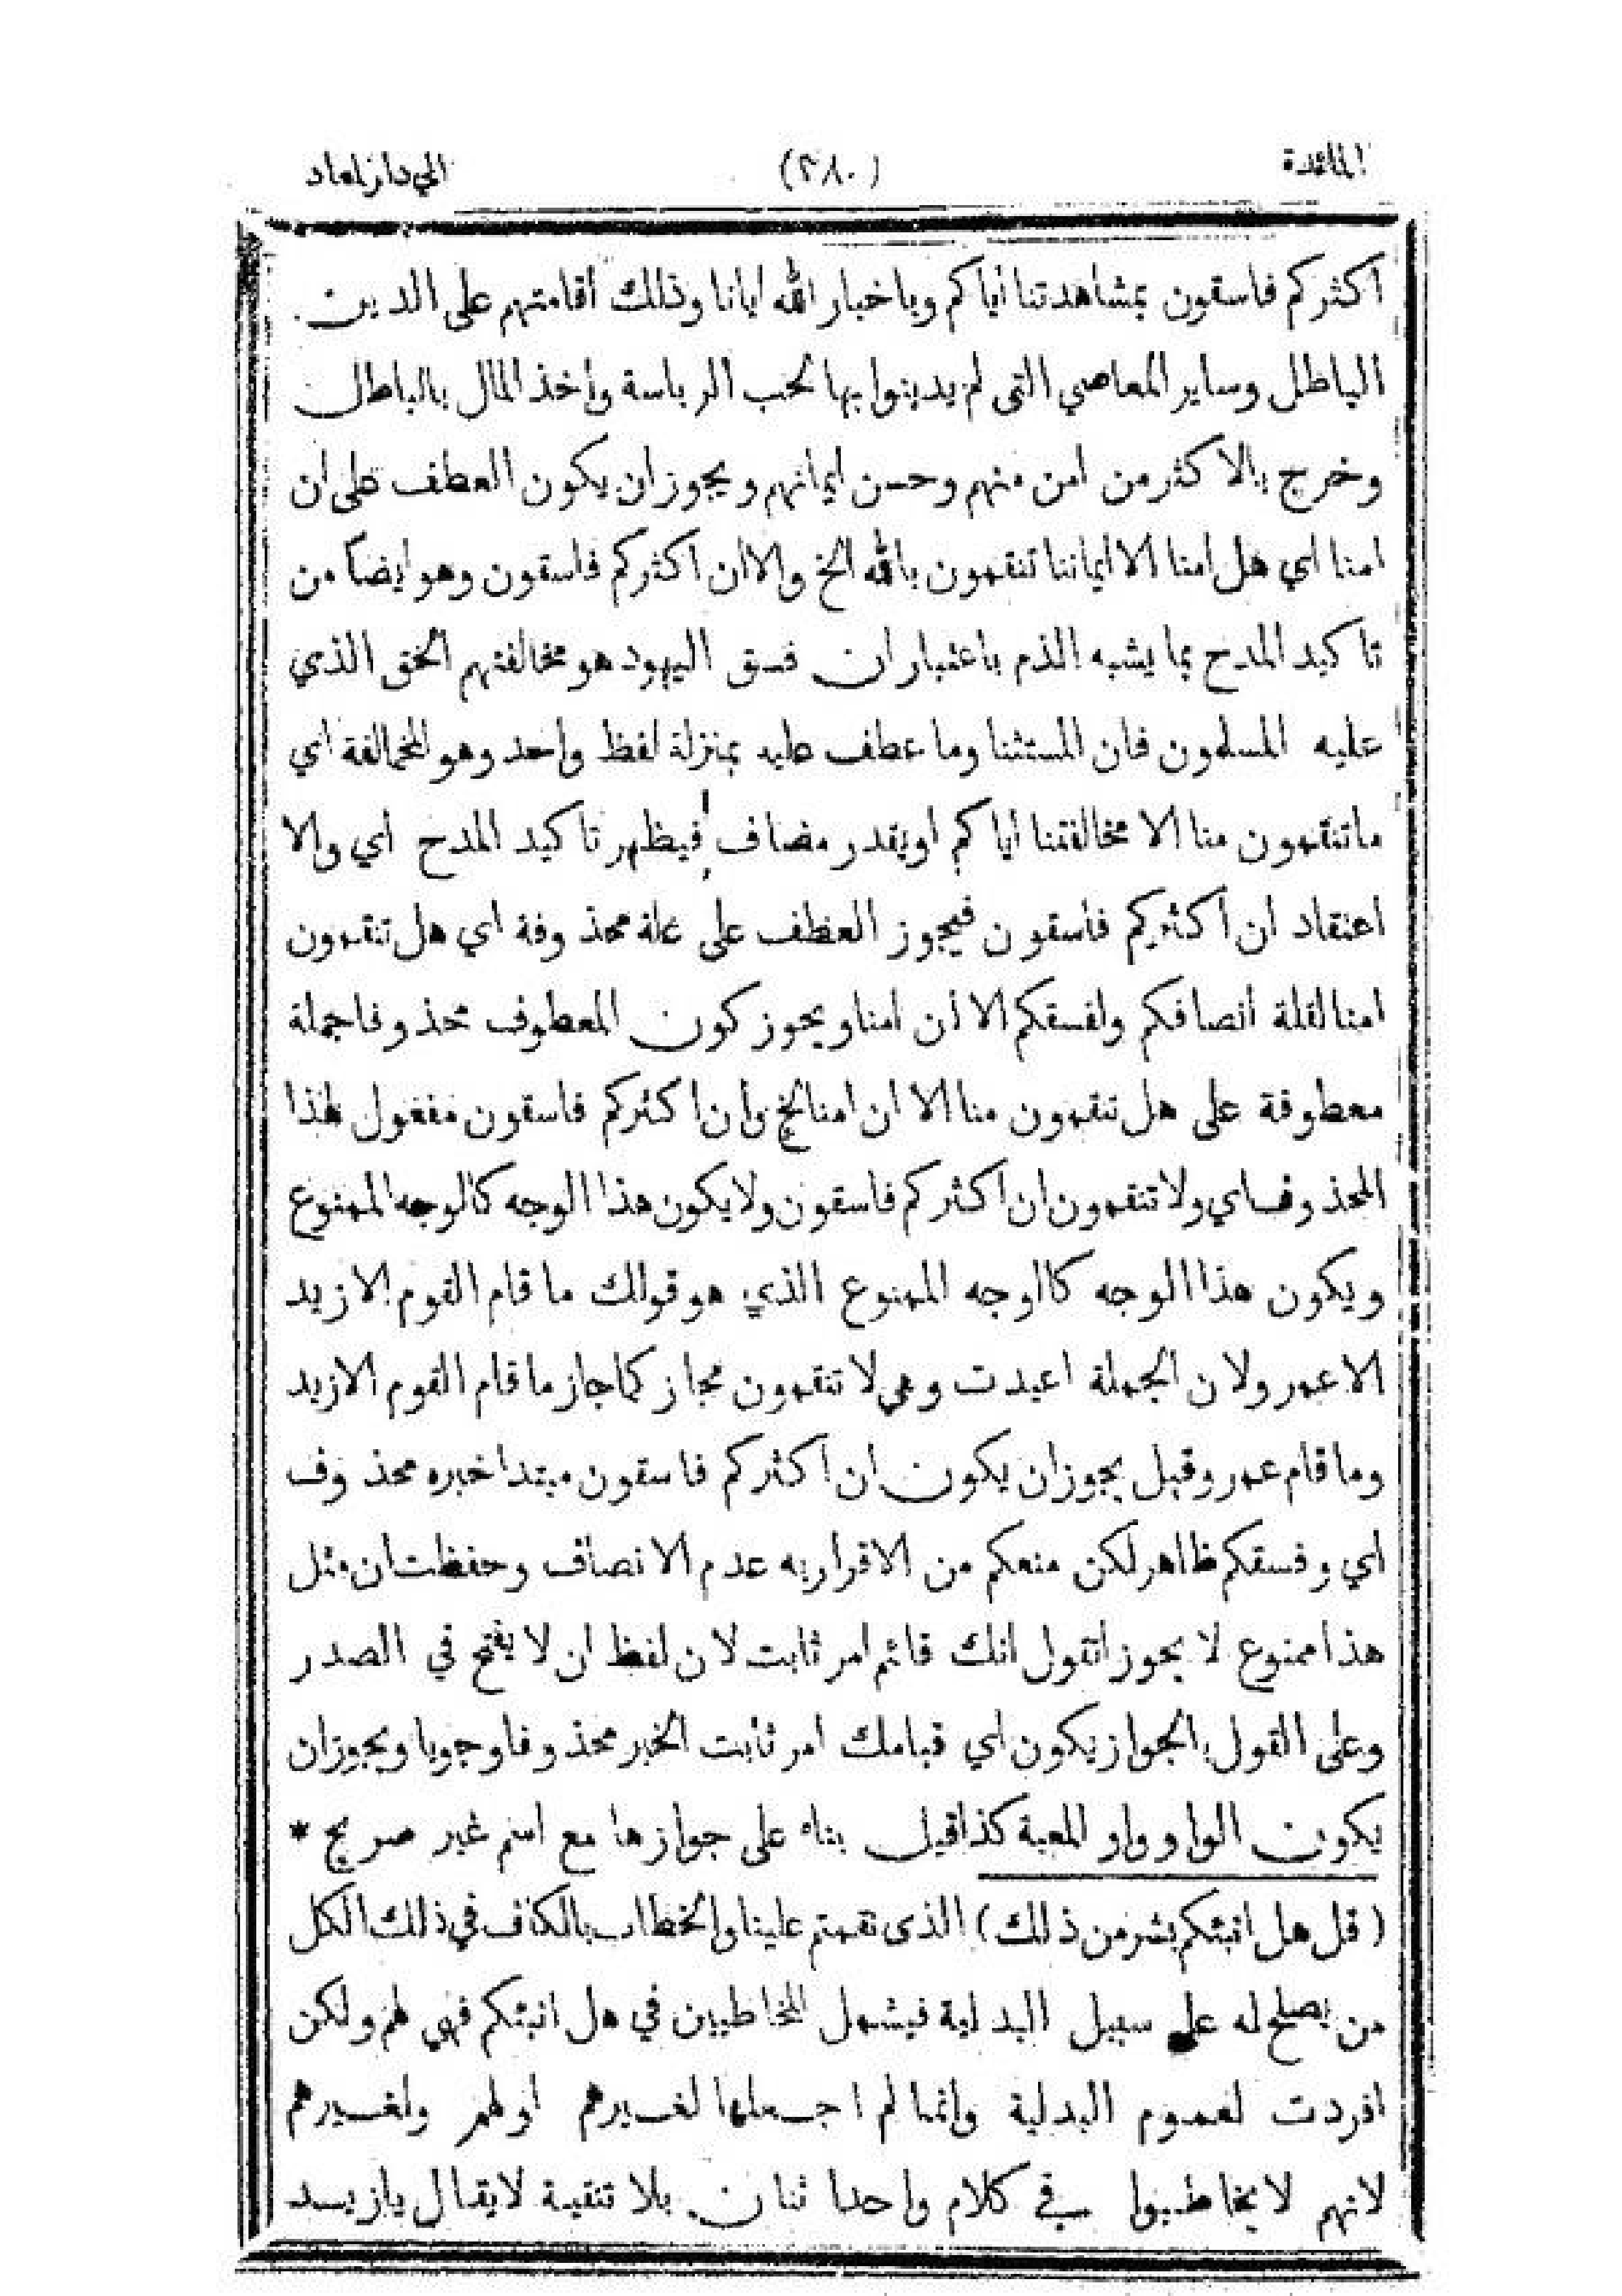 المائدة (٣٨٠) الي دار المعاد
اكثركم فاسقون بمشاهدتنا اياكم وباخبار الله ايانا وذلك أقامتهم على الدين
الباطل وساير المعاصي التى لم يدينوا بها لحب الرياسة واخذ المال بالباطل
وخرج بالاكثر من امن منهم وحسن ايمانهم ويجوز ان يكون العطف على ان
امنا اي هل امنا الا ايماننا تنقمون بالله الخ والاان اكثركم فاسقون وهو ايضاً من
تاكيد المدح بما يشبه الذم باعتبار ان فسق اليهود هو مخالفتهم الحق الذي
عليه المسلمون فان المستثنا وما عطف عليه بمنزلة لفظ واحد وهو المخالفة اي
ماتنقمون منا الا مخالفتنا اياكم او يقدر مضاف فيظهر تاكيد المدح اي والا
اعتقاد ان اكثركم فاسقون فيجوز العطف على علة محذوفة اي هل تنقمون
امنا لقلة أنصافكم ولفسقكم الا أن امنا ويجوز كون المعطوف محذوفا جملة
معطوفة على هل تنقمون منا الا ان امنا الخ وان اكثركم فاسقون مفعول لهذا
المحذوف اي ولا تنقمون ان اكثركم فاسقون ولا يكون هذا الوجه كالوجه الممنوع
ويكون هذا الوجه كالوجه الممنوع الذي هو قولك ما قام القوم الا زيد
الا عمر ولان الجملة اعيدت وهي لا تنقمون مجاز كما جاز ما قام القوم الا زيد
وما قام عمر وقيل يجوز ان يكون ان اكثركم فاسقون مبتدا خبره محذوف
اي وفسقكم ظاهر لكن منعكم من الاقرار به عدم الانصاف وحفظت ان مثل
هذا ممنوع لا يجوز اتقول انك قائم امر ثابت لان لفظ ان لا يفتح في الصدر
وعلى القول بالجواز يكون اي قيامك امر ثابت الخبر محذوفا وجوبا ويجوز ان
يكون الواو واو المعية كذا قيل بناء على جوازها مع اسم غير صريح *
(قل هل انبئكم بشر من ذلك) الذى نقمتم علينا والخطاب بالكاف في ذلك الكل
من يصلح له على سبيل البداية فيشمل المخاطبين في هل انبئكم فهي لهم ولكن
افردت لعموم البدلية وانما لم اجعلها لغيرهم اولهم ولغيرهم
لانهم لا يخاطبوا في كلام واحد اثنان بلا تثنية لايقال يازيد